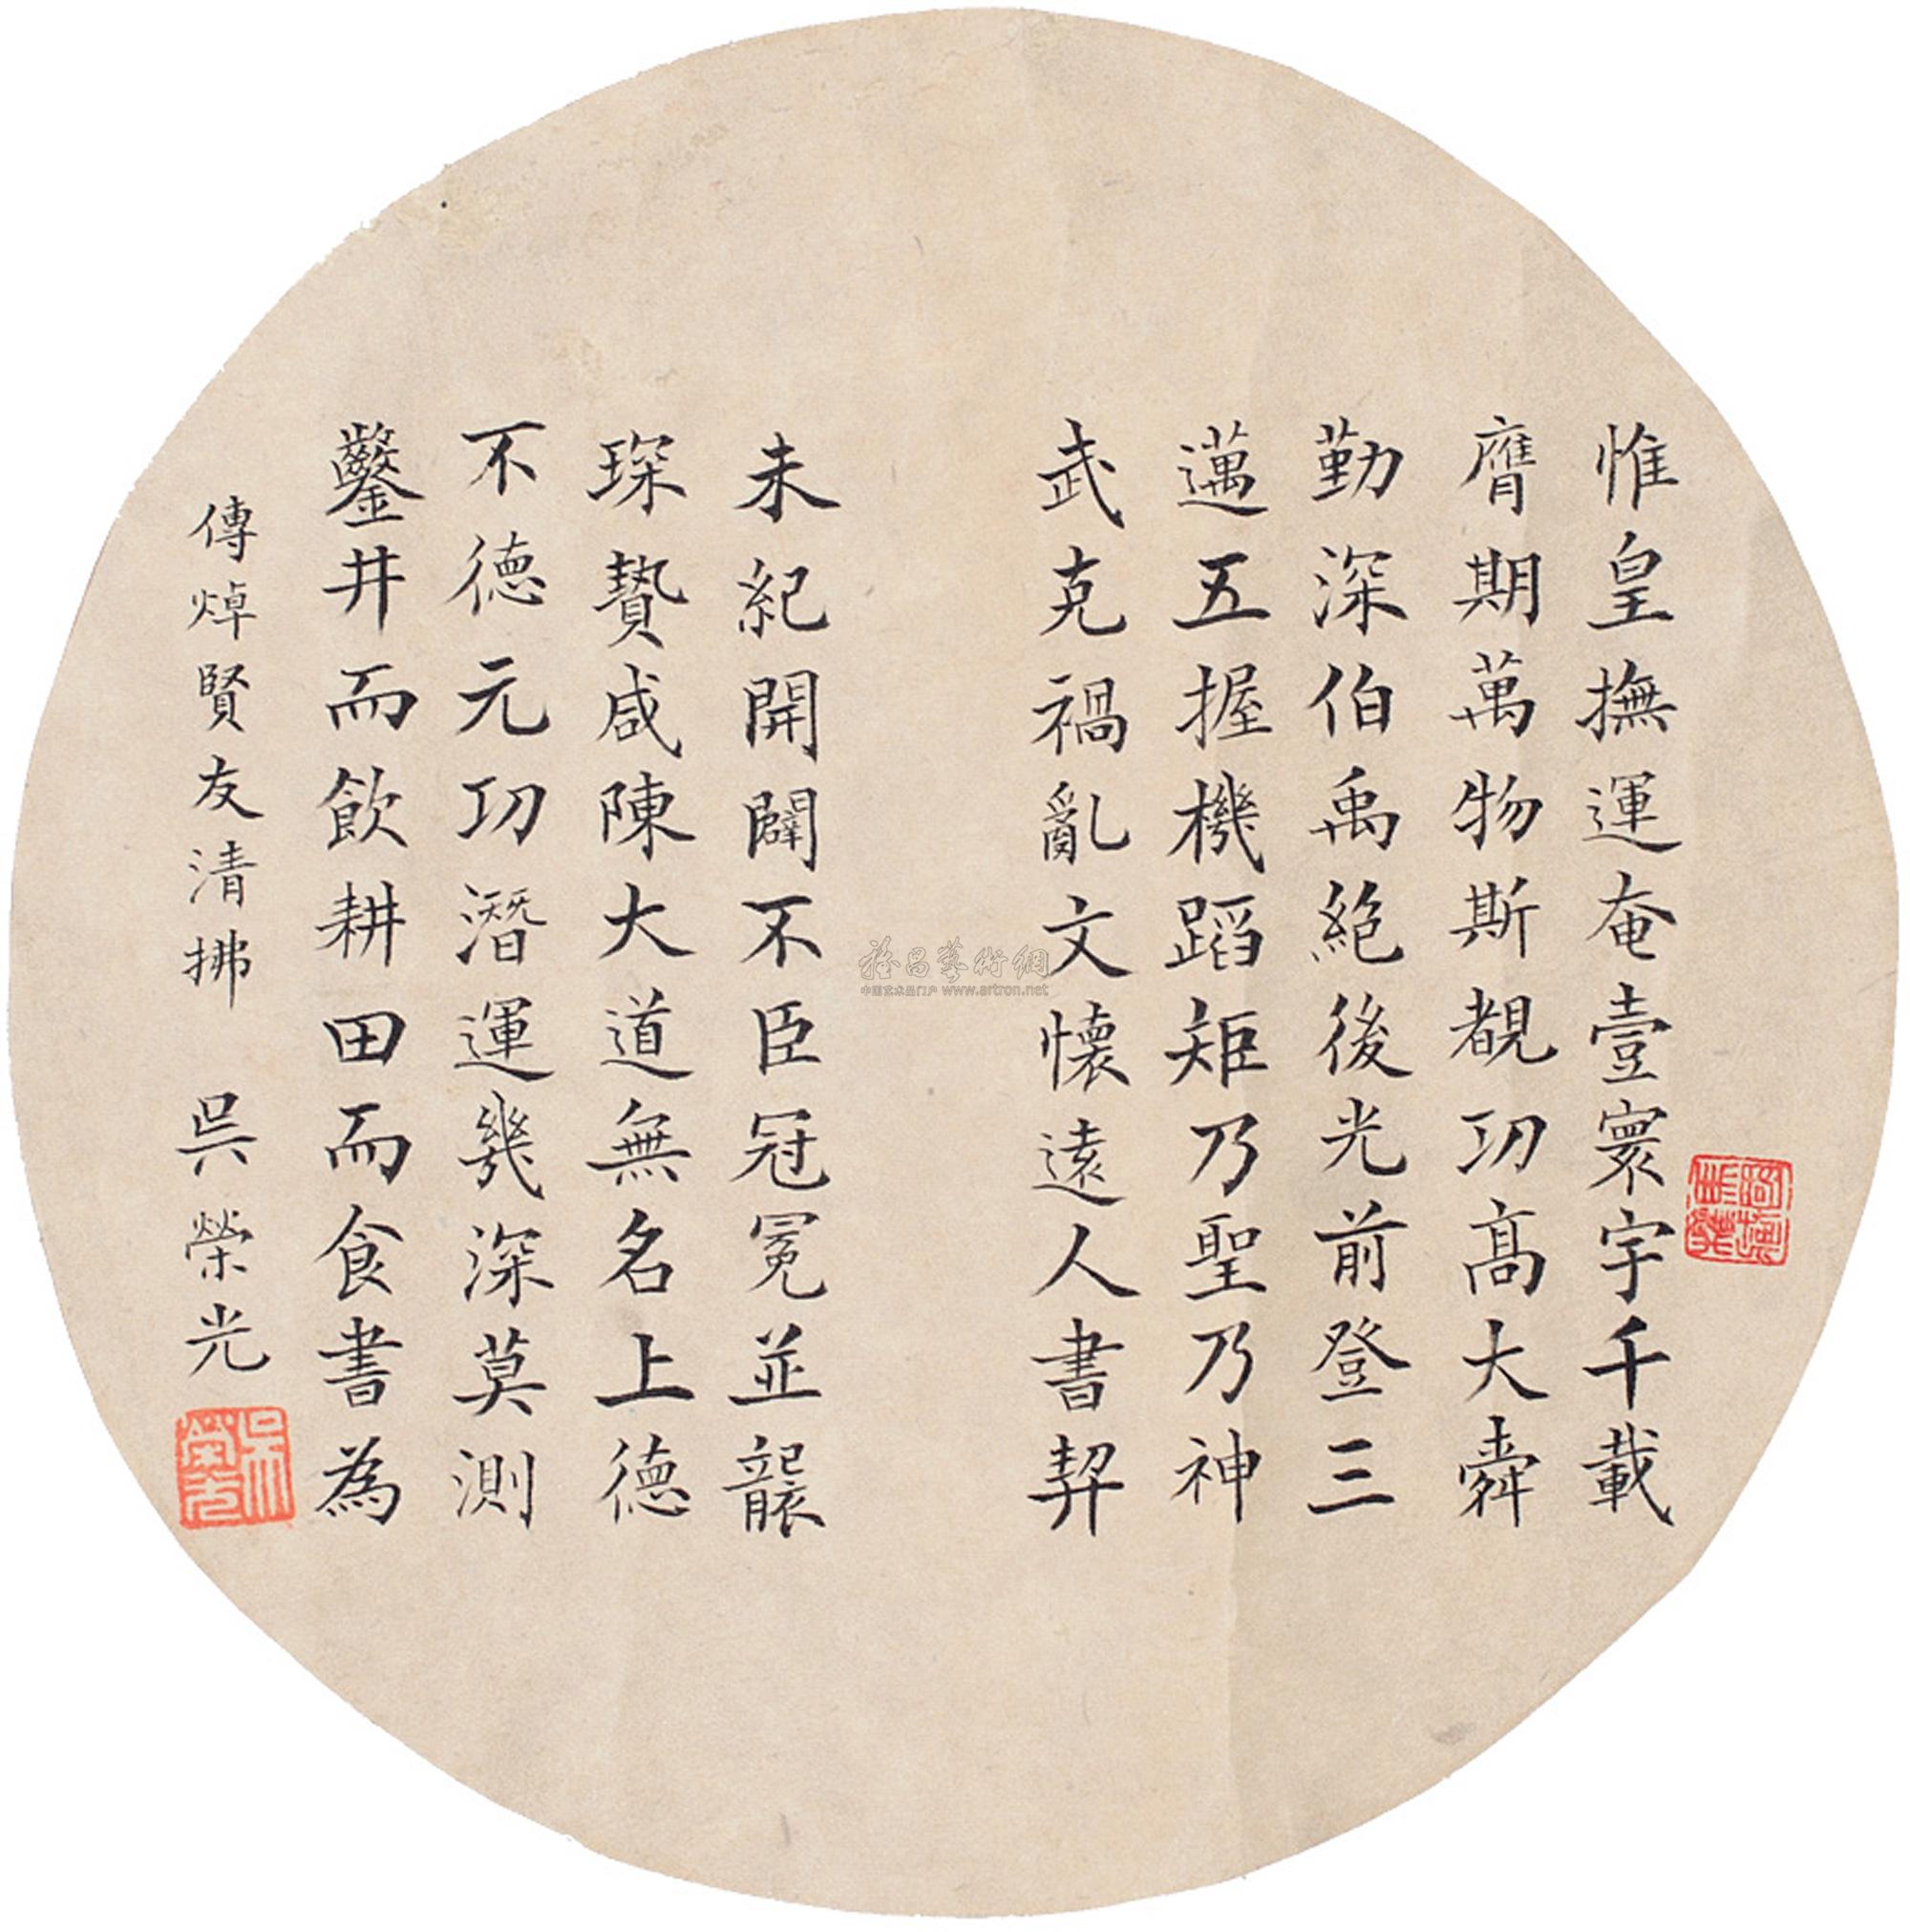 惟皇撫運奄壹寰宇千載
膺期萬物斯覩功高大舜
勤深伯禹絶後光前登三
邁五握機蹈矩乃聖乃神
武克禍亂文懷遠人書契
未紀開闢不臣冠冕並襲
琛贄咸陳大道無名上德
不德元功潛運幾深莫測
鑿井而飲耕田而食書為
傳焯賢友清拂 吳榮光
吳榮光
雅昌藝術網
中国艺术品门户 www.artron.net